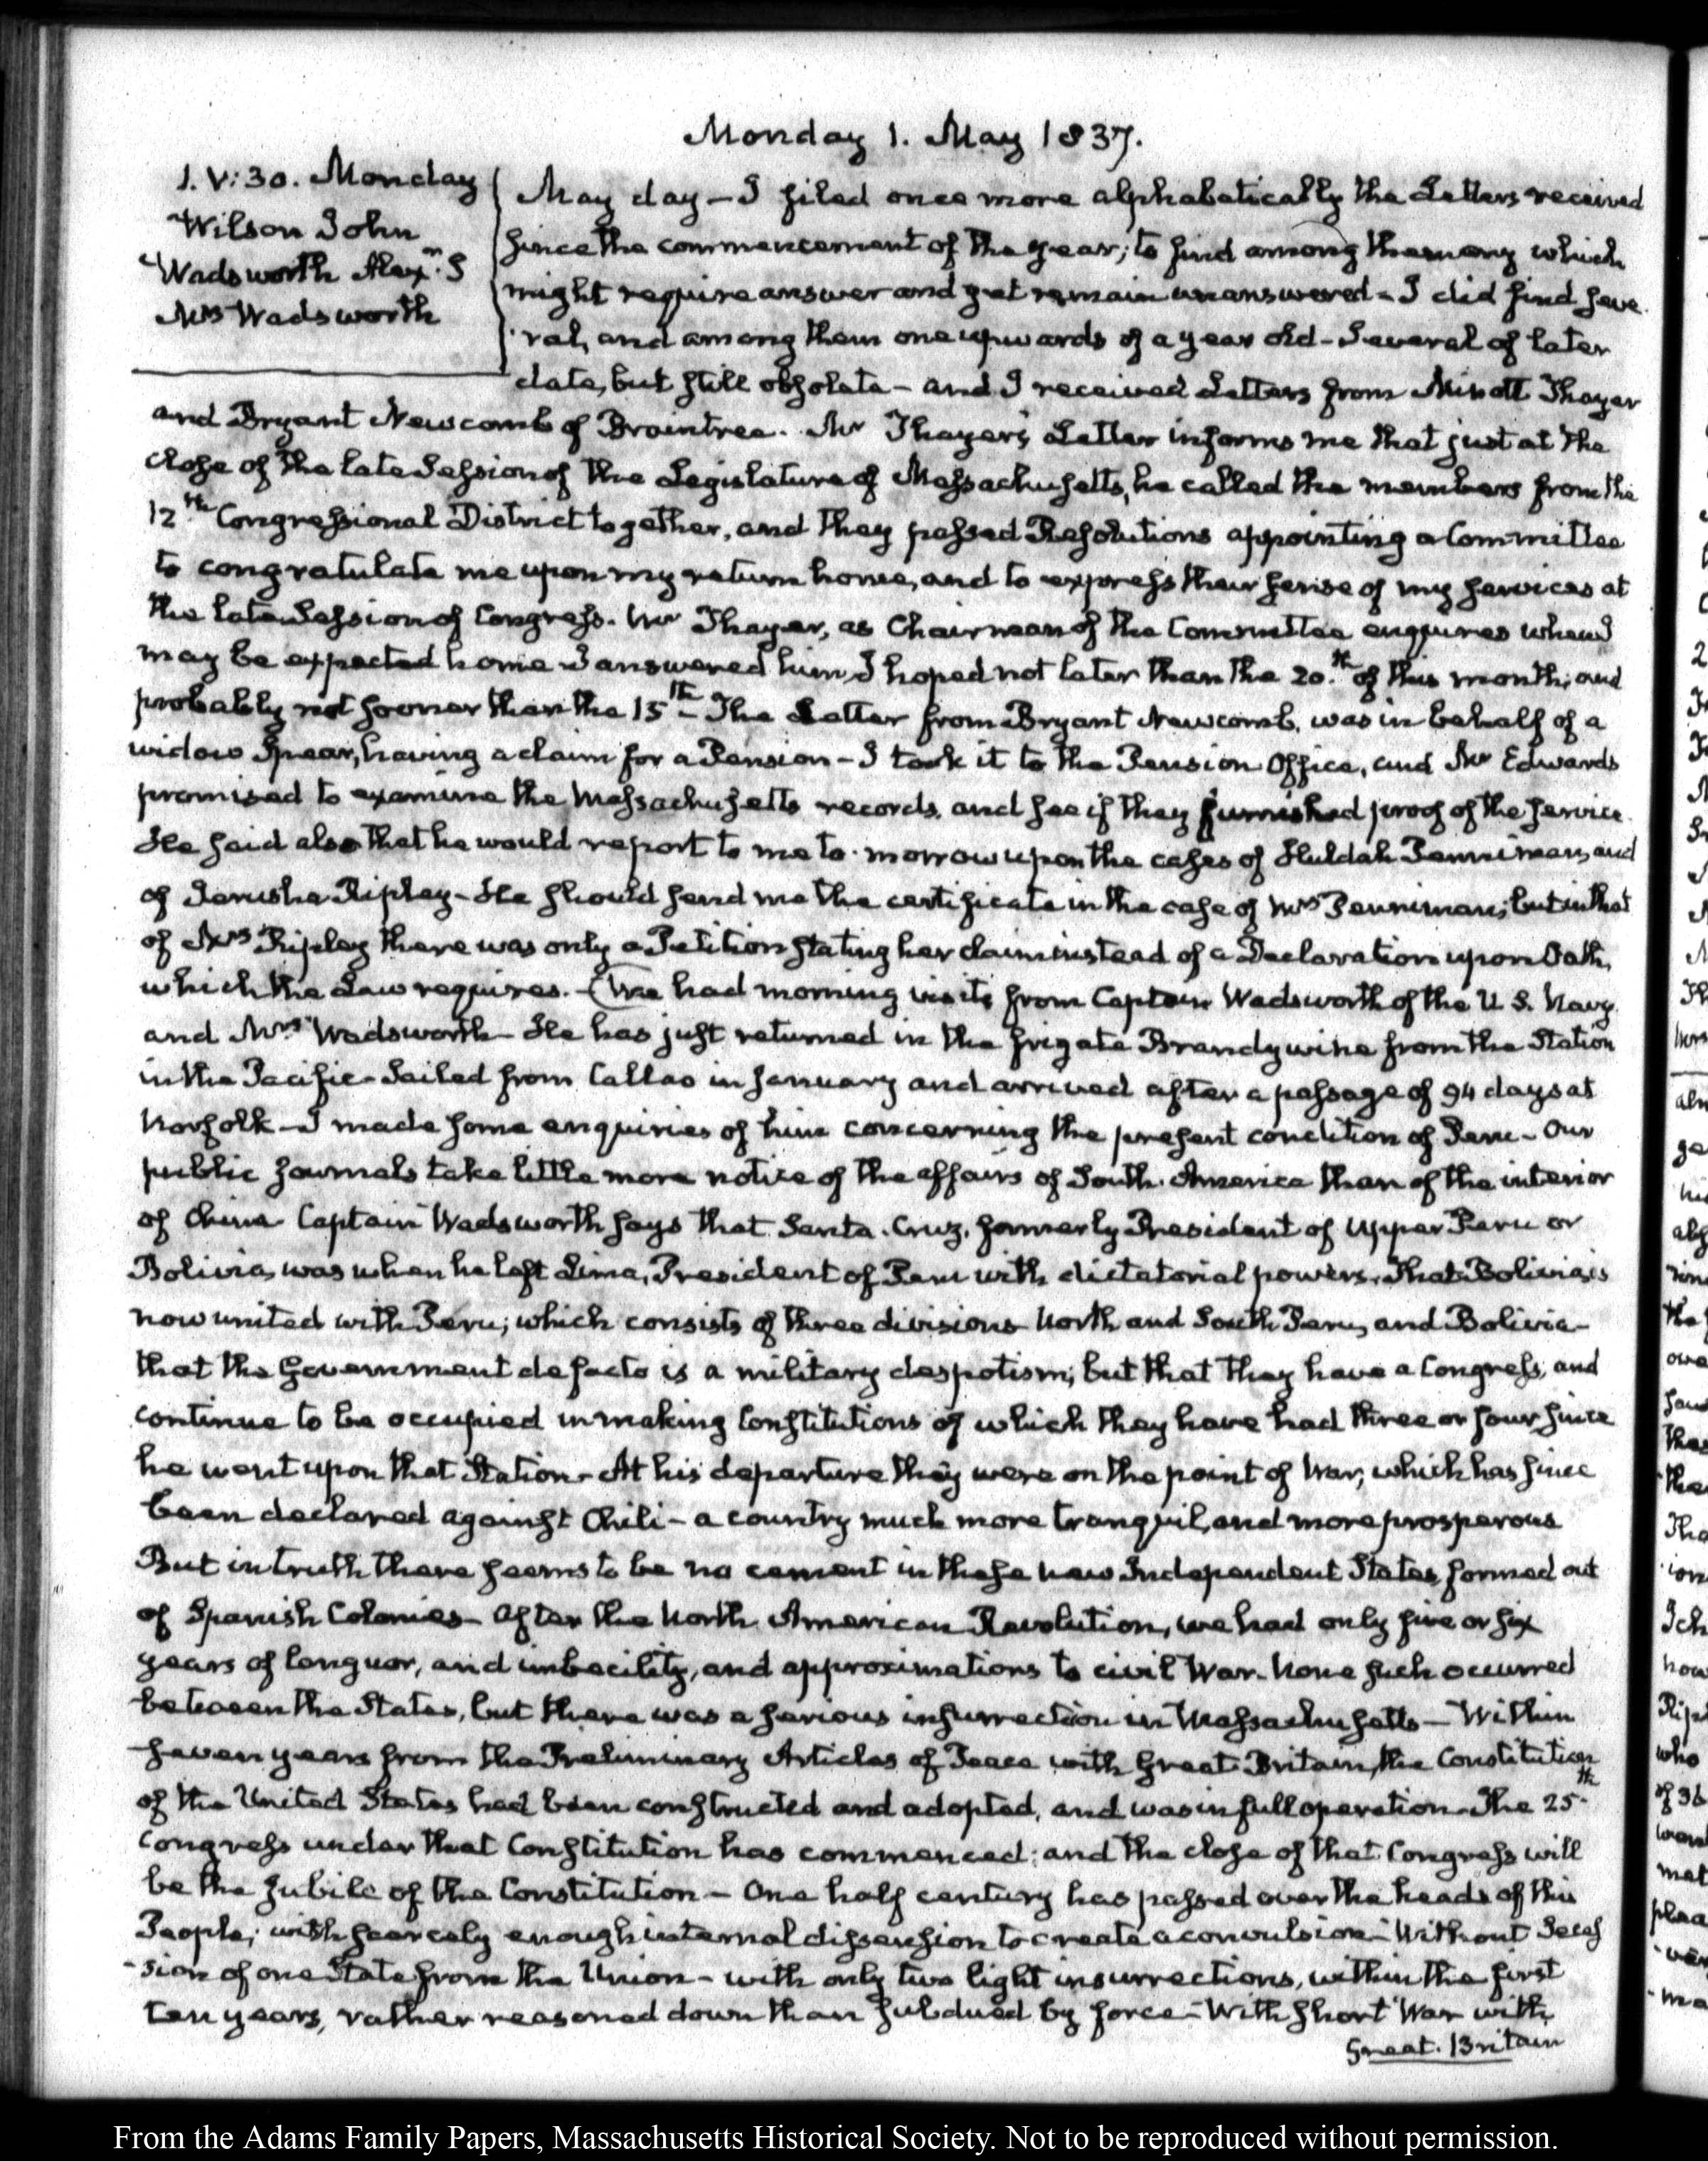 Monday 1. May 1837.
1. V:30. Monday
Wilson John
Wadsworth Alexr. S
Mrs Wadsworth
May day - I filed once more alphabetically the Letters received
since the commencement of the year; to find among them any which
might require answer and yet remain unanswered - I did find seve
ral, and among them one upwards of a year old - Several of later
date, but still obsolete - and I received Letters from Minott Thayer
and Bryant Newcomb of Braintree. Mr Thayer's Letter informs me that just at the
close of the late Session of the Legislature of Massachusetts, he called the members from the
12th Congressional District together, and they passed Resolutions appointing a Committee
to congratulate me upon my return home, and to express their sense of my services at
the late Session of Congress. Mr Thayer, as Chairman of the Committee enquires when I
may be expected home I answered him I hoped not later than the 20.th of this month; and
probably not sooner than the 15th - The Letter from Bryant Newcomb, was in behalf of a
widow Spear, having a claim for a Pension - I took it to the Pension Office, and Mr Edwards
promised to examine the Massachusetts records, and see if they furnished proof of the service.
He said also that he would report to me to-morrow upon the cases of Huldah Penniman, and
of Jerusha Ripley - He should send me the certificate in the case of Mrs Penniman; but in that
of Mrs Ripley there was only a Petition stating her claim instead of a Declaration upon Oath,
which the Law requires. - (We had morning visits from Captain Wadsworth of the U. S. Navy
and Mrs Wadsworth - He has just returned in the frigate Brandywine from the Station
in the Pacific - Sailed from Callao in January and arrived after a passage of 94 days at
Norfolk - I made some enquiries of him concerning the present condition of Peru - Our
public journals take little more notice of the affairs of South America than of the interior
of China - Captain Wadsworth says that Santa-Cruz, formerly President of Upper Peru or
Bolivia, was when he left Lima, President of Peru with dictatorial powers. That Bolivia is
now united with Peru; which consists of three divisions North and South Peru, and Bolivia -
that the Government de facto is a military despotism; but that they have a Congress, and
continue to be occupied in making Constitutions of which they have had three or four since
he went upon that Station - At his departure they were on the point of War, which has since
been declared against Chili - a country much more tranquil, and more prosperous
But in truth there seems to be no cement in these new Independent States formed out
of Spanish Colonies - After the North American Revolution, we had only five or six
years of languor, and imbecility, and approximations to civil War - None such occurred
between the States, but there was a serious insurrection in Massachusetts - Within
seven years from the Preliminary Articles of Peace with Great Britain, the Constitution
of the United States had been constructed and adopted, and was in full operation - The 25th
Congress under that Constitution has commenced; and the close of that Congress will
be the Jubile of the Constitution - One half century has passed over the heads of this
People; with scarcely enough internal dissension to create a convulsion - Without Seces
sion of one State from the Union - with only two light insurrections, within the first
ten years, rather reasoned down than subdued by force - With short War with
Great-Britain
From the Adams Family Papers, Massachusetts Historical Society. Not to be reproduced without permission.